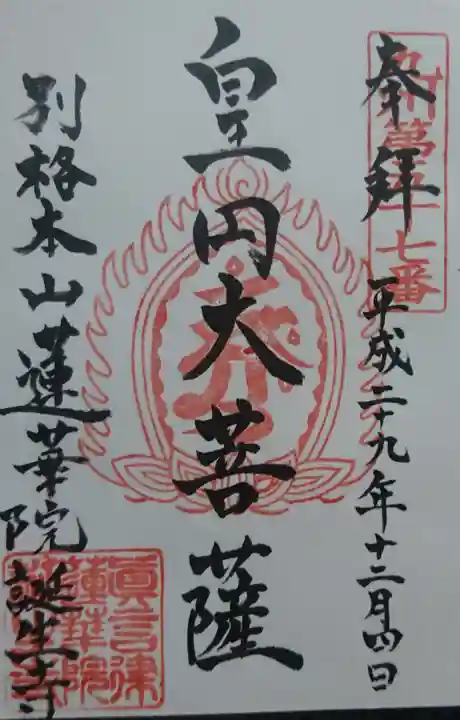 奉拝
平成二十九年十二月四日
九州第五十七番
皇円大菩薩
別格本山蓮華院誕生寺
真言律
蓮華院